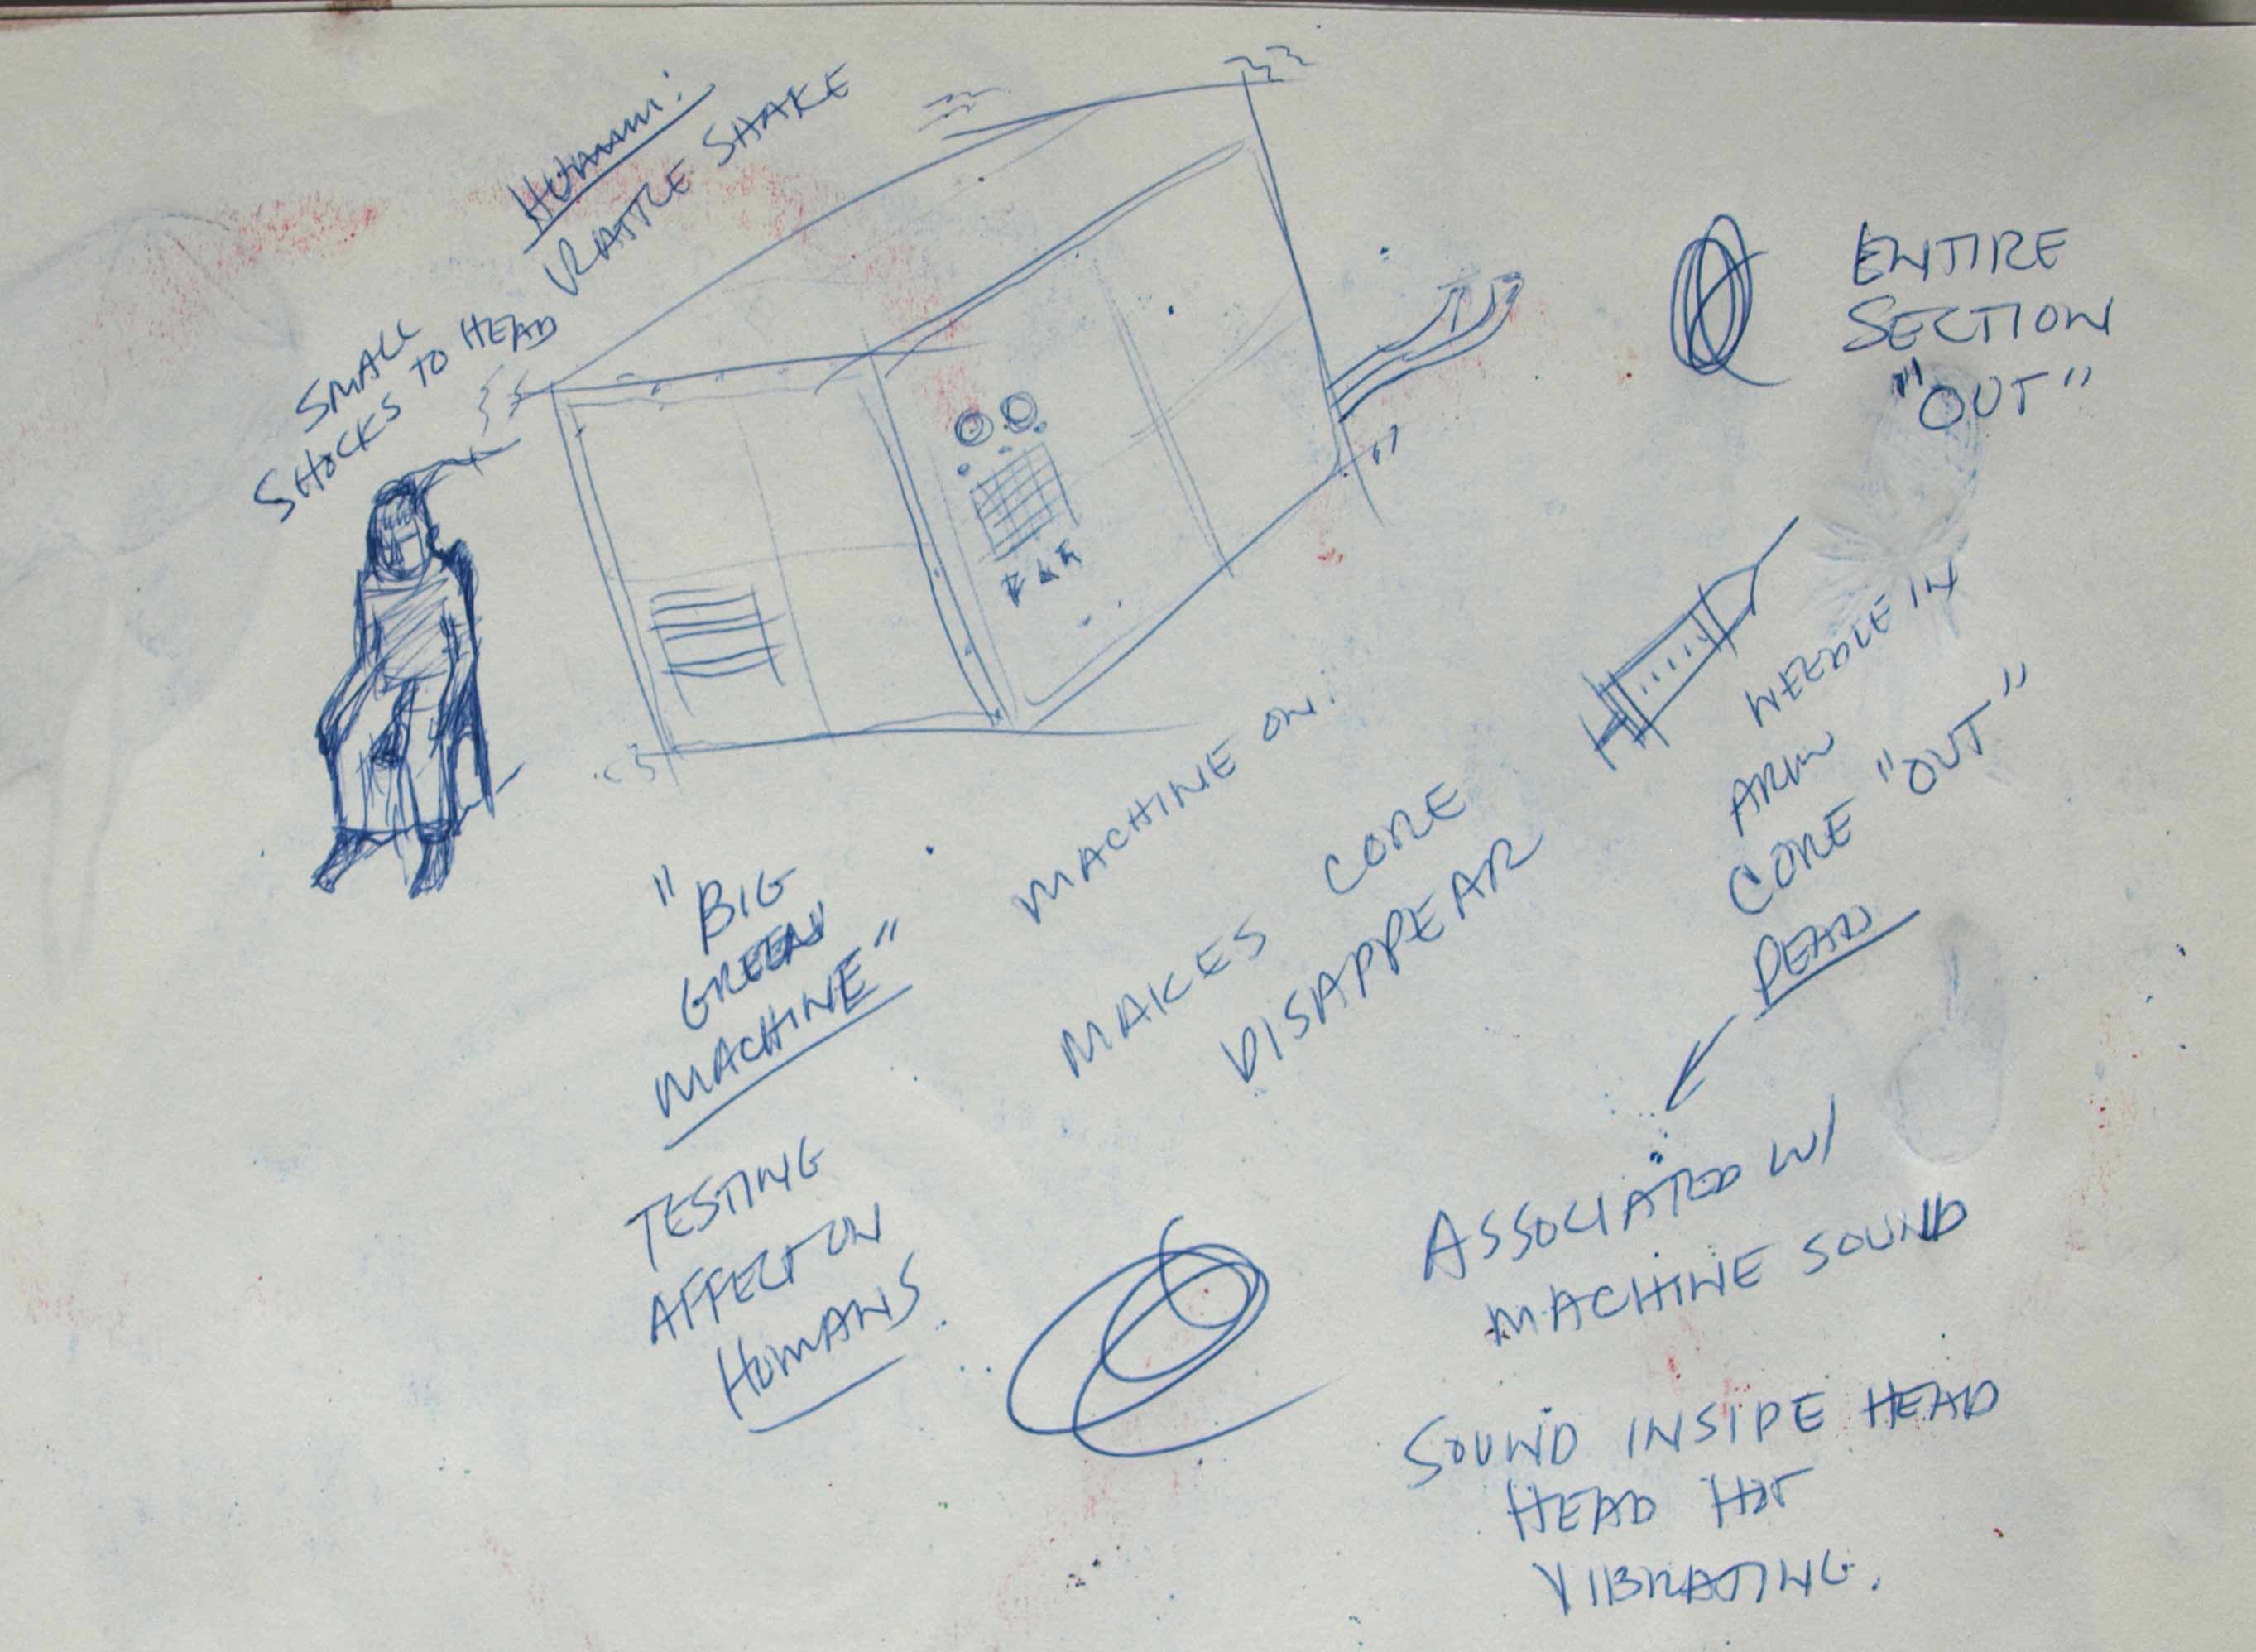 Hummm:
RATTLE SHAKE
SMALL
SHOCKS TO HEAD
ENTIRE
SECTION
"OUT"
NEEDLE IN
ARM
CORE "OUT"
DEAD
MACHINE ON.
MAKES CORE
DISAPPEAR
"BIG
GREEN
MACHINE"
TESTING
AFFECT ON
HUMANS
ASSOCIATED W/
MACHINE SOUND
SOUND INSIDE HEAD
HEAD HOT
VIBRATING.